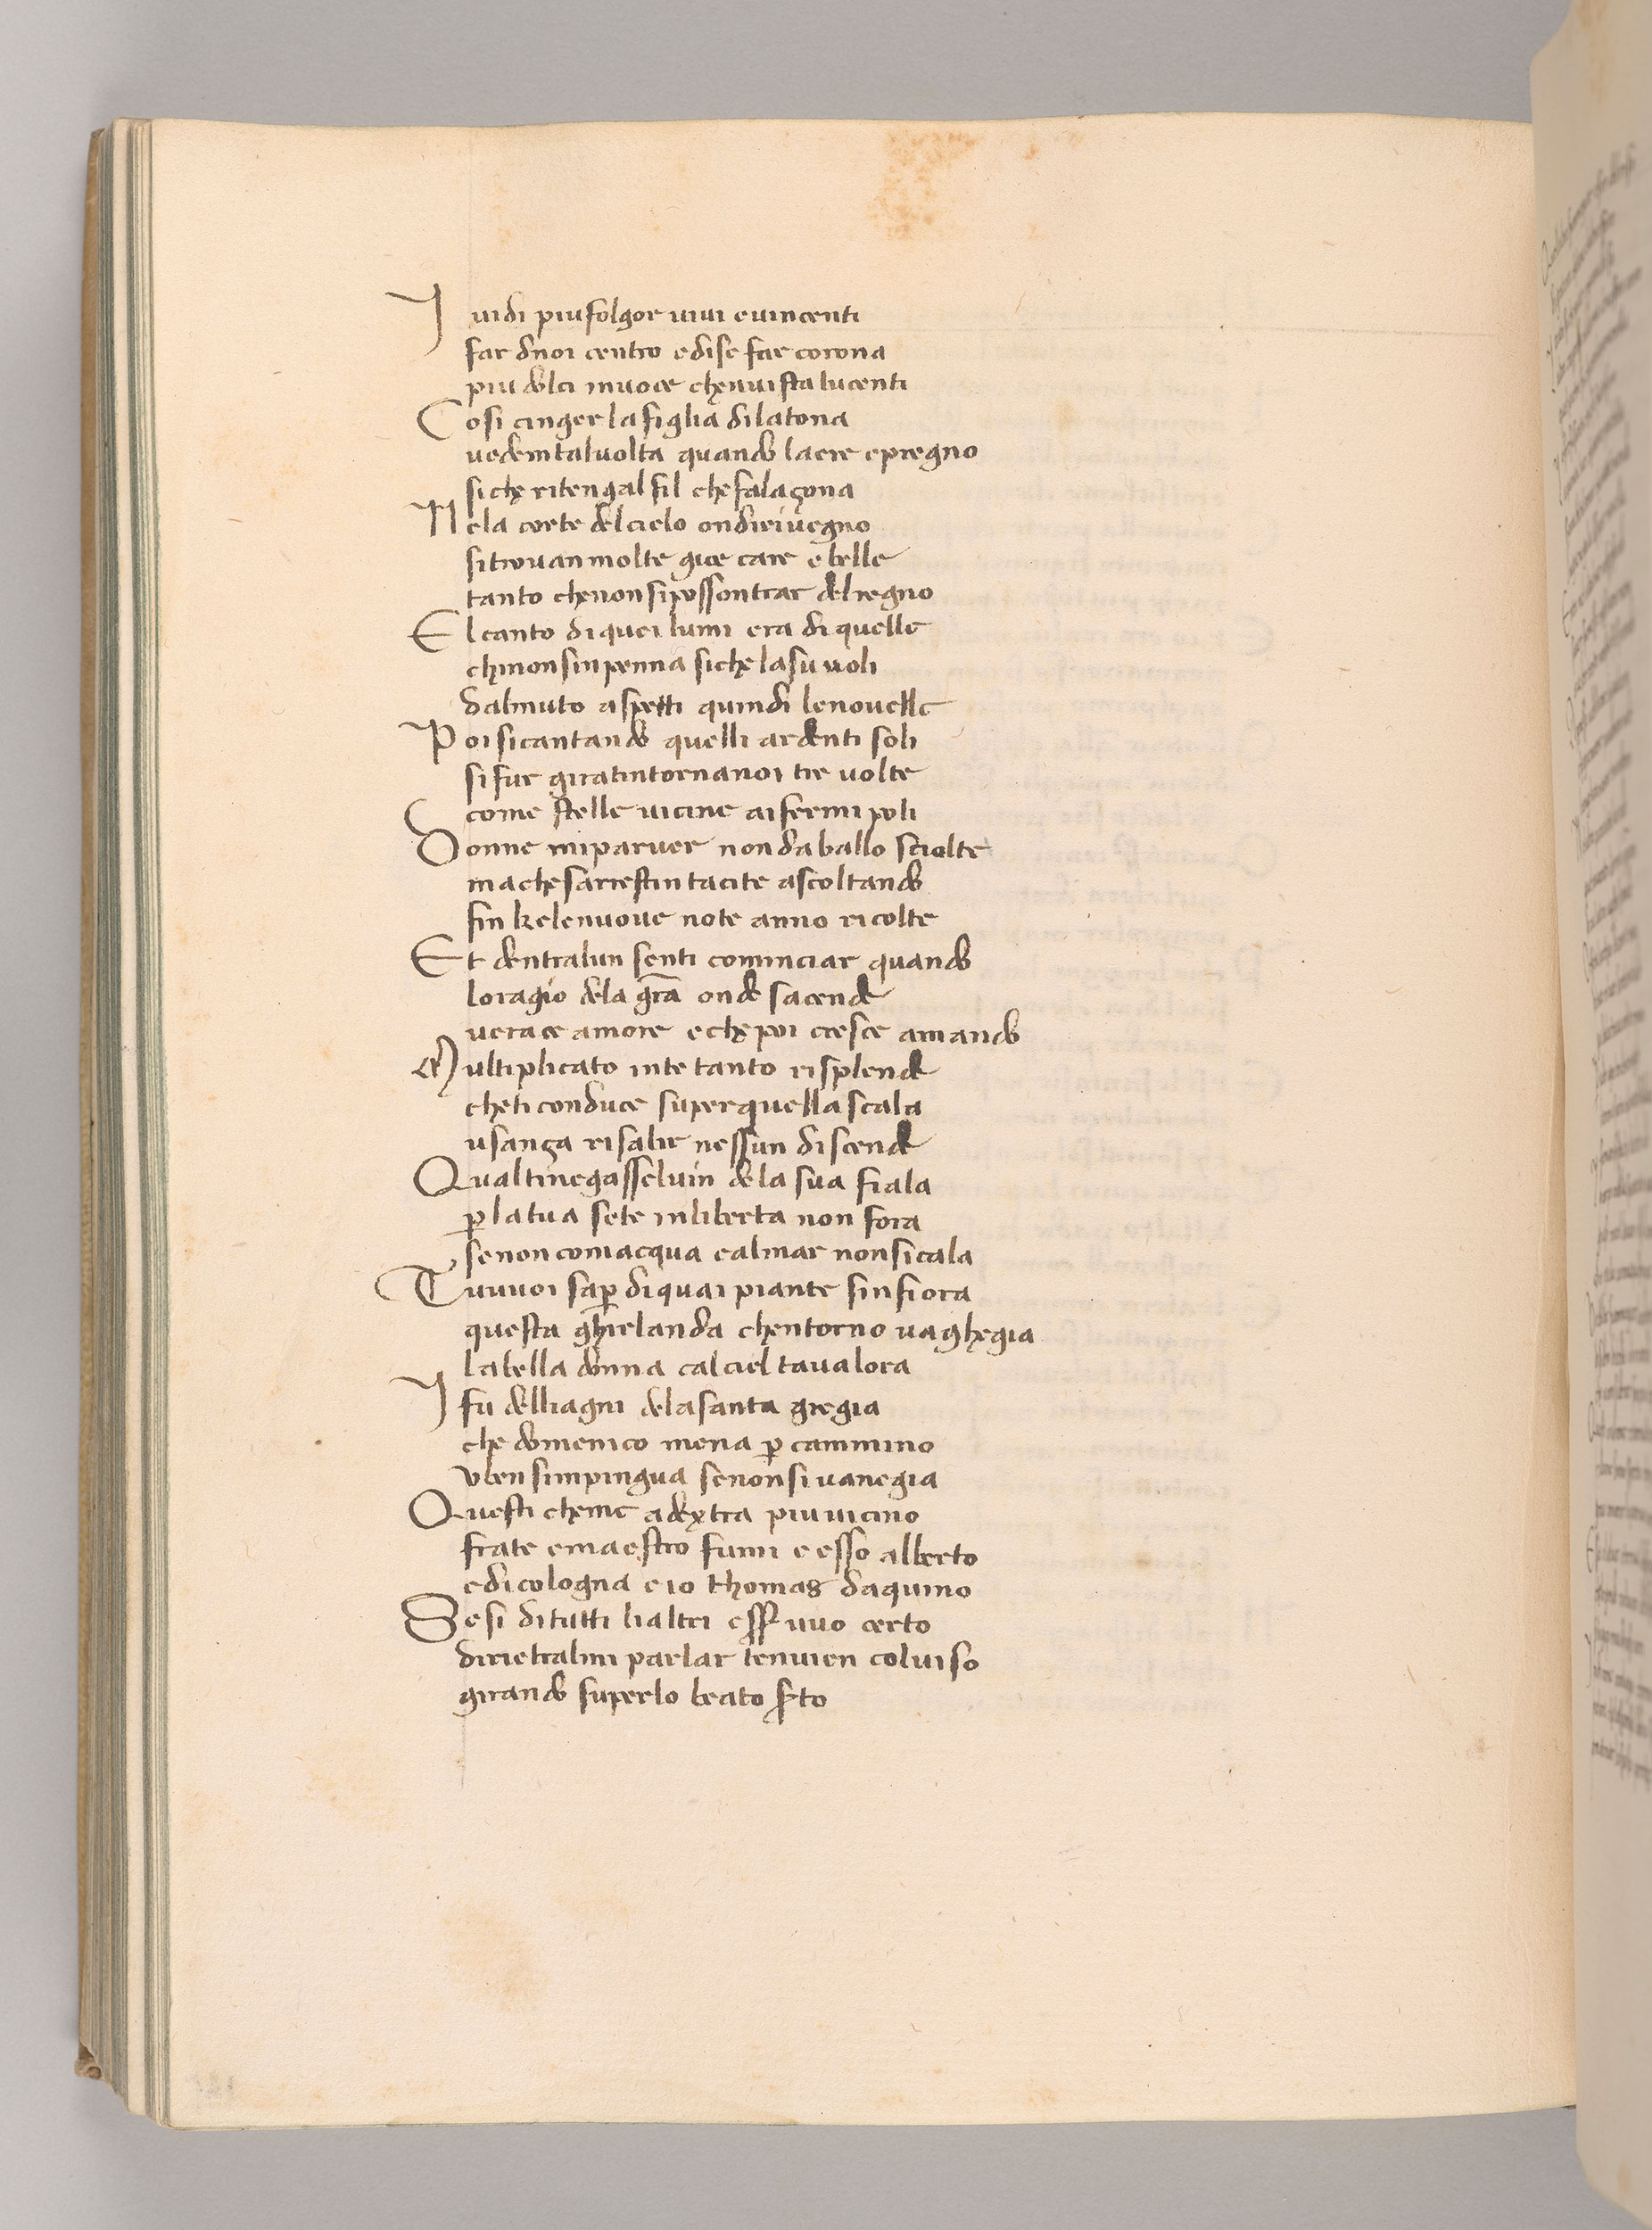 I uidi piu folgor uiui euincenti
far dnoi centro edise far corona
piu dolci inuoce chenuista lucenti
Cosi cinger la figlia dilatona
uedemtaluolta quando laere epregno
siche ritengal fil chefalaçona
Nela corte delcielo ondirivegno
sitrouan molte gioe care ebelle
tanto chenonsipossontrar delregno
El canto diquei lumi era di quelle
chinonsinpenna siche lasu uoli
dalmuto aspetti quindi lenouelle
Poi sicantando quelli ardenti soli
sifur giratintornanoi tre uolte
come stelle uicine aifermi poli
Donne miparuer non daballo sciolte
machesarrestin tacite ascoltando
fin kelenuoue note anno ricolte
Et dentralun senti cominciar quando
loragio dela gra onde sacende
uerace amore eche poi cresce amando
Multiplicato inte tanto risplende
cheti conduce super quella scala
usança risalir nessun discende
Qualtinegasseluin dela sua fiala
p latua sete inliberta non fora
senon comacqua calmar nonsicala
Tuuuoi sap diquai piante sinfiora
questa ghirlanda chentorno uaghegia
labella donna calciel taualora
I fu delliagni delasanta gregia
che domenico mena p cammino
uben simpingua senonsiuanegia
Questi cheme adextra piuuicino
frate emaestro fumi e esso alberto
edicologna eio thomas daquino
Sesi ditutti lialtri esser uuo certo
dirietralmi parlar tenuien coluiso
girando superlo beato serto